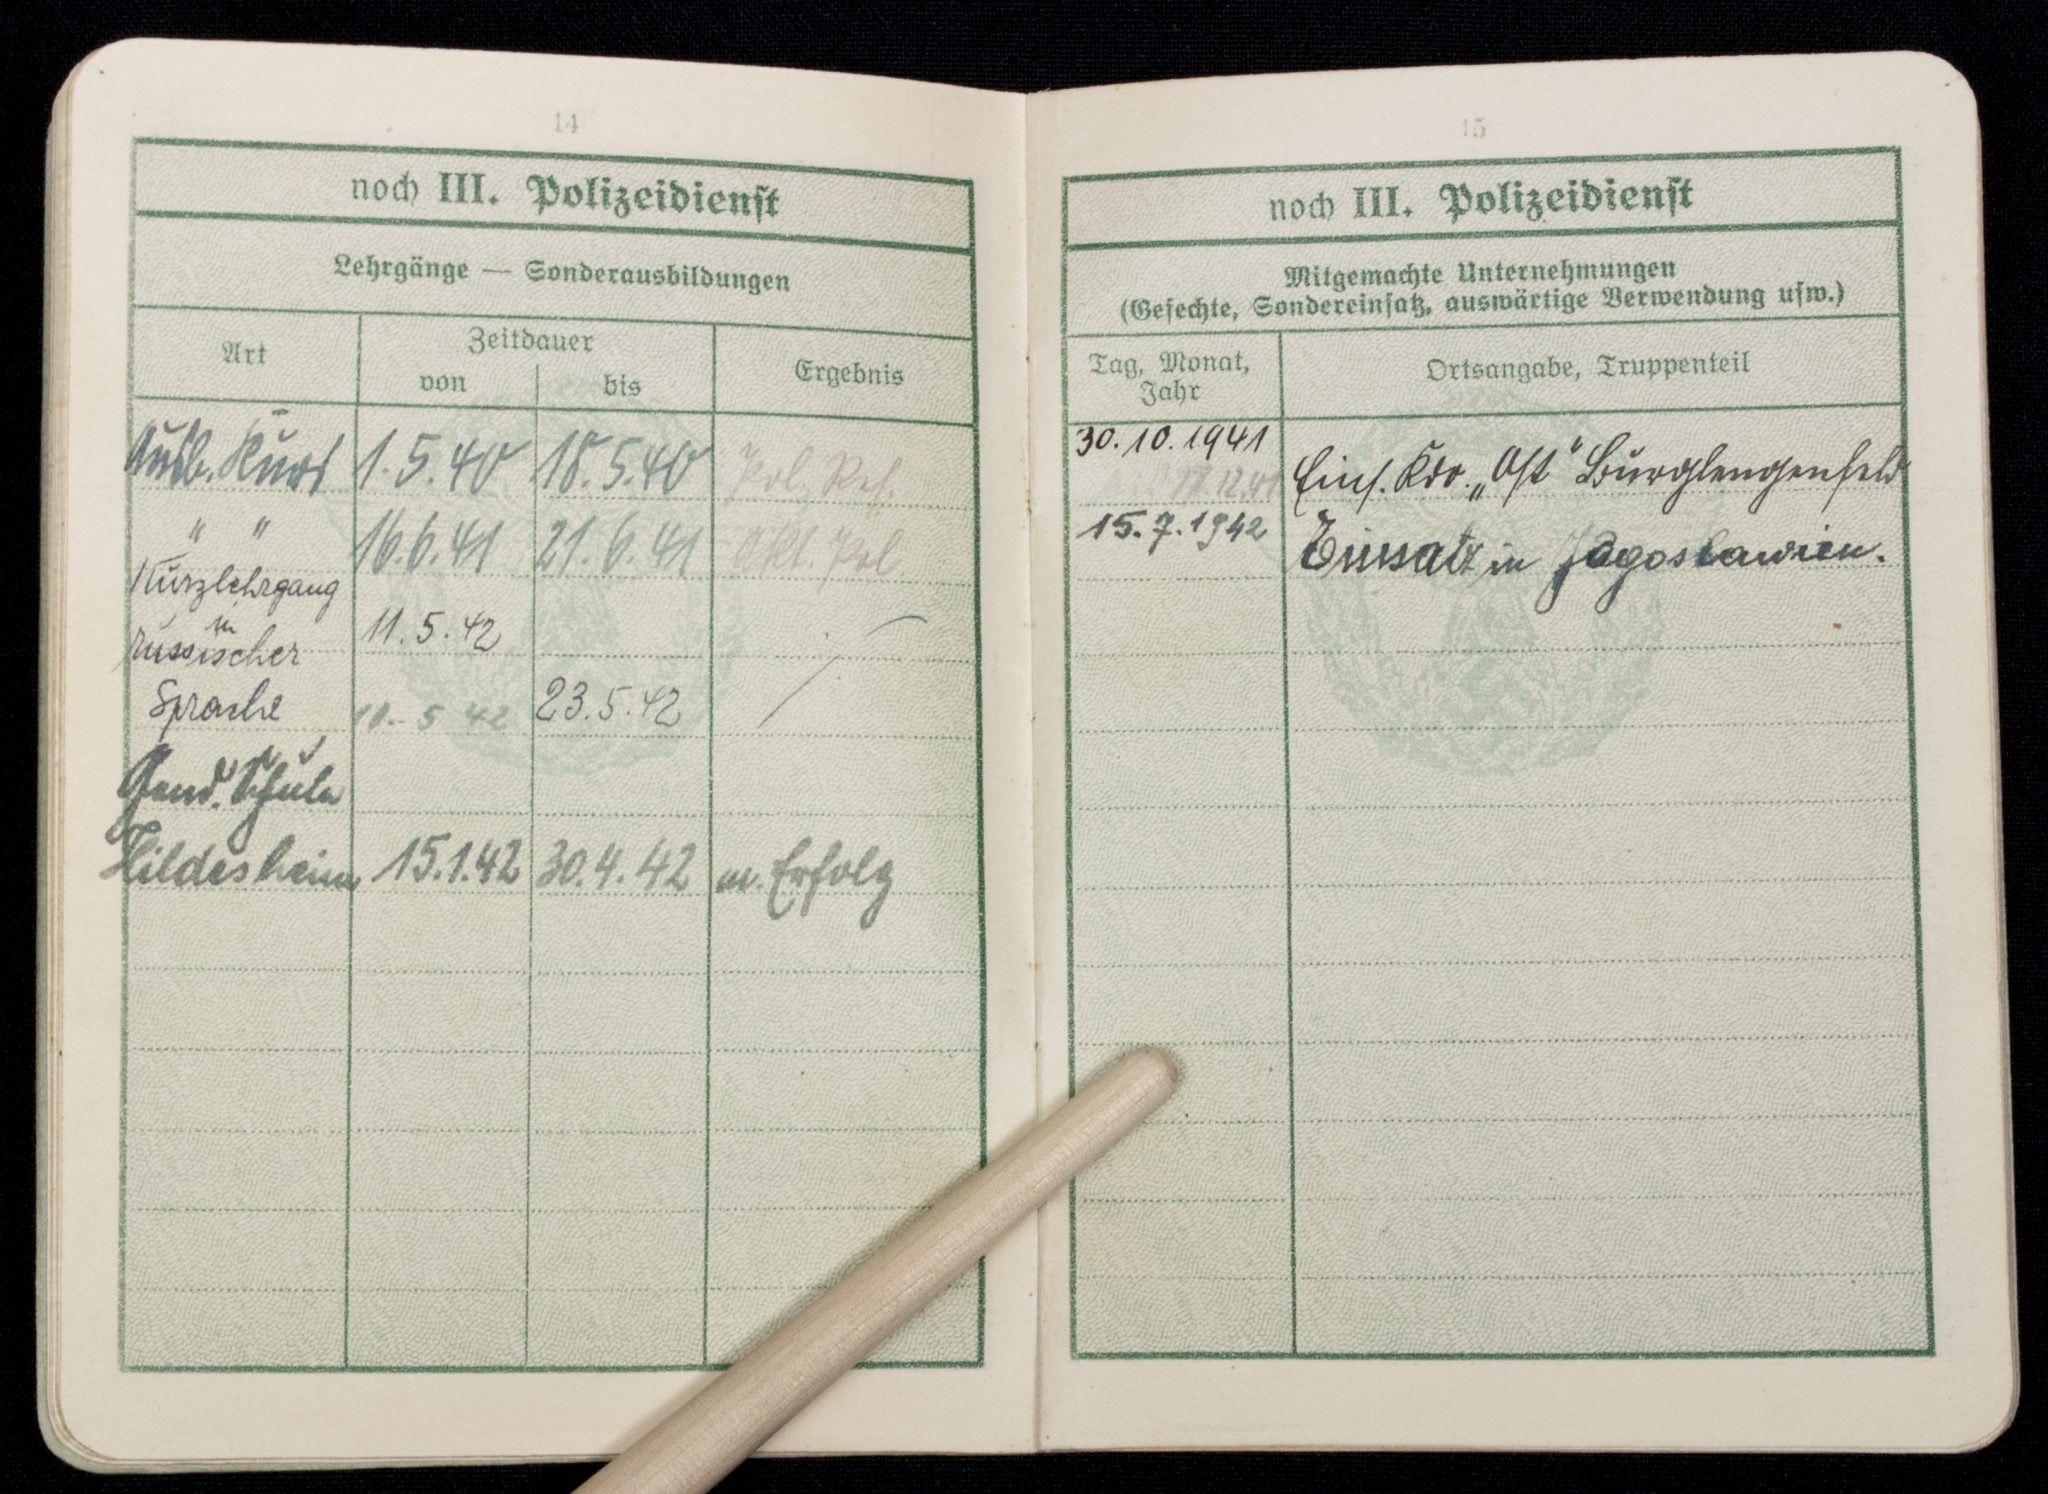 14
noch III. Polizeidienst
Lehrgänge — Sonderausbildungen
Art
Zeitdauer
von
bis
Ergebnis
Ausb. Kurs 1.5.40 18.5.40 Pol. Res.
" " 16.6.41 21.6.41 Akt. Pol
Kurzlehrgang
in
russischer 11.5.42
Sprache 11.5 42 23.5.42
Gend. Schule
Hildesheim 15.1.42 30.4.42 m. Erfolg
15
noch III. Polizeidienst
Mitgemachte Unternehmungen
(Gefechte, Sondereinsatz, auswärtige Verwendung usw.)
Tag, Monat,
Jahr
Ortsangabe, Truppenteil
30.10.1941
Eins. Kdo. „Ost" Burglengenfeld
15.7.1942
Einsatz in Jugoslawien.